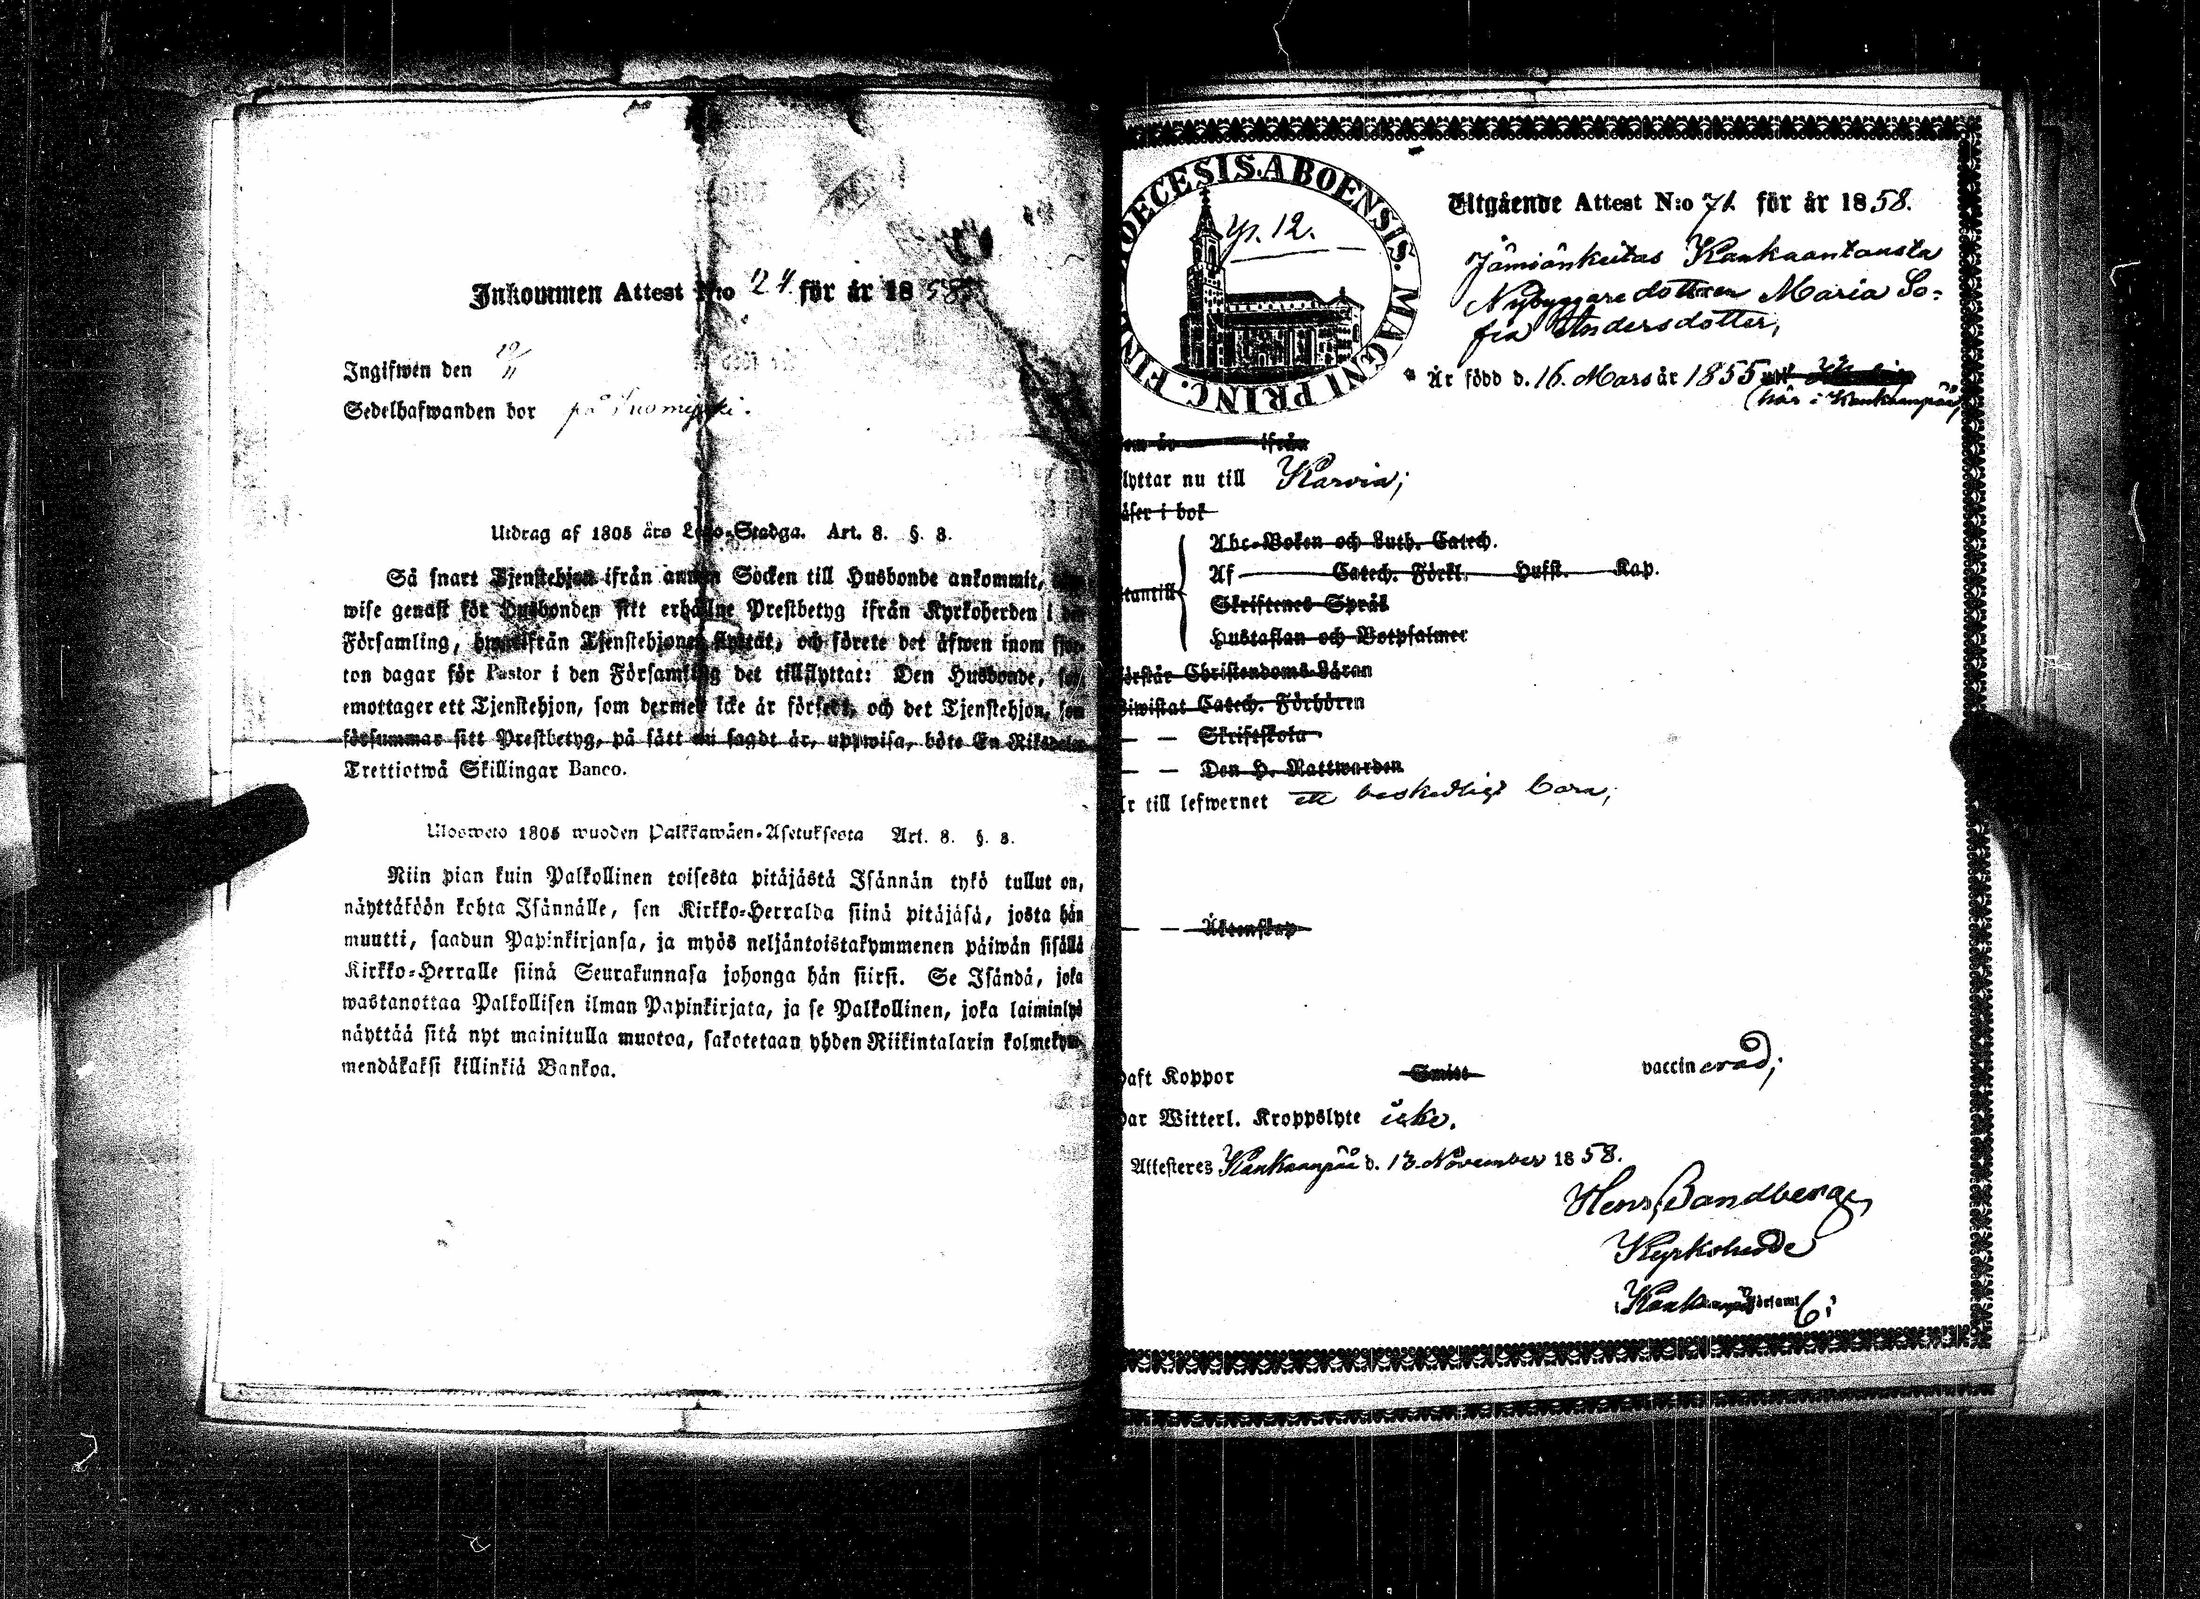 Inkommen Attest N:o 24 för år 1858
Ingifwen den 19/11
Sedelhafwanden bor på Suomijärvi.
Utdrag af 1805 års Lego-Stadga. Art. 8. §. 3.
Så snart Tjenstehjon ifrån annan Socken till Husbonde ankommit,
wise genast för Husbonden sitt erhållne Prestbetyg ifrån Kyrkoherden i den
Församling, hwarifrån Tjenstehjonet flyttat, och förete det äfwen inom fjor-
ton dagar för Pastor i den Församling det tillflyttat: Den Husbonde, som
emottager ett Tjenstehjon, som dermed icke är försedt, och det Tjenstehjon, som
försummar sitt Prestbetyg, på sätt nu sagdt är, uppwisa, böte En Riksdaler
Trettiotwå Skillingar Banco.
Ulosweto 1805 wuoden Palkkawäen-Asetuksesta Art. 8. §. 3.
Niin pian kuin Palkollinen toisesta pitäjästä Isännän tykö tullut on,
näyttäköön kohta Isännälle, sen Kirkko-Herralda siinä pitäjäsä, josta hän
muutti, saadun Papinkirjansa, ja myös neljäntoistakymmenen päiwän sisällä
Kirkko-Herralle siinä Seurakunnasa johonga hän siirsi. Se Isändä, joka
wastanottaa Palkollisen ilman Papinkirjata, ja se Palkollinen, joka laiminlyö
näyttää sitä nyt mainitulla muotoa, sakotetaan yhden Riikintalarin kolmekym-
mendäkaksi killinkiä Bankoa.
DIOECESIS. ABOENSIS. MAGNI PRINC. FINL
p. 12.
Utgående Attest N:o 71 för år 1858.
Jämiänkeitas Kankaantausta
Nybyggaredottren Maria So-
fia Andersdotter,
Är född d. 16. Mars år 1855
(här i Kankaanpää)
om år ifrån
lyttar nu till Karvia;
äser i bok
Abc-Boken och Luth. Catech.
Af Catech. Förkl. Husst. Kap.
tantill
Skriftenes Språk
Hustaflan och Botpsalmer
örstår Christendoms-Läran
Biwistat Catech. Förhören
— — Skriftskola
— — Den H. Nattwarden
är till lefwernet ett beskedligt barn;
— — Äktenskap
haft Koppor Smitt vaccinerad;
har Witterl. Kroppslyte icke.
Attesteres Kankaanpää d. 13. November 1858.
Henr. Sandberg,
Kyrkoherde
i Kankaanpää församl